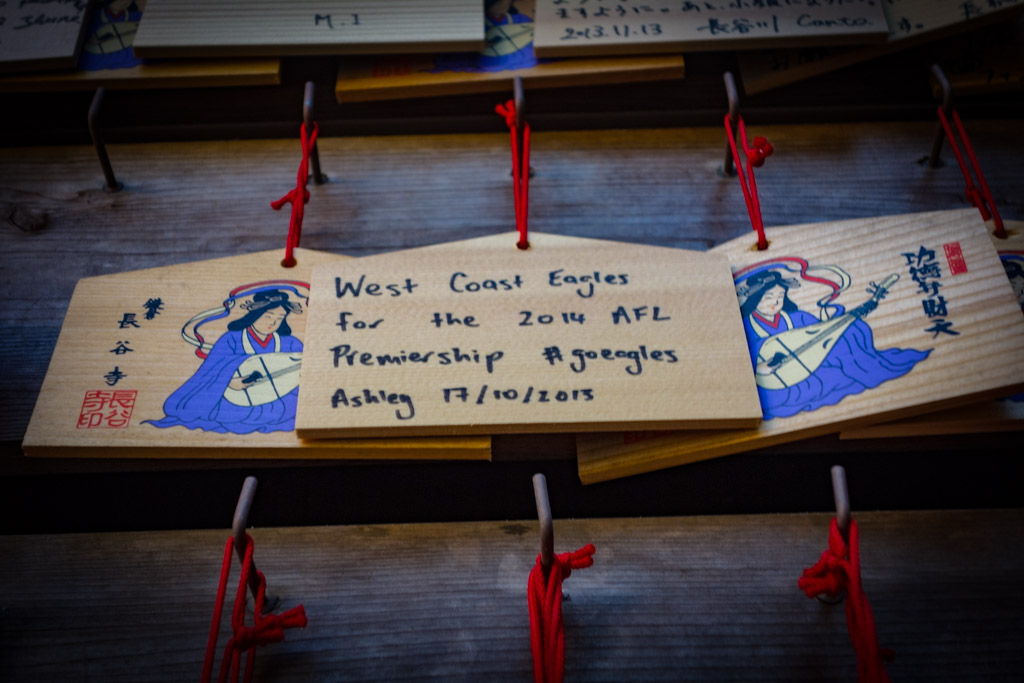 M.I
ますように。
2013.11.13 長谷川 Canta.
West Coast Eagles
for the 2014 AFL
Premiership #goeagles
Ashley 17/10/2013
長谷寺
長谷
寺印
功徳弁財天